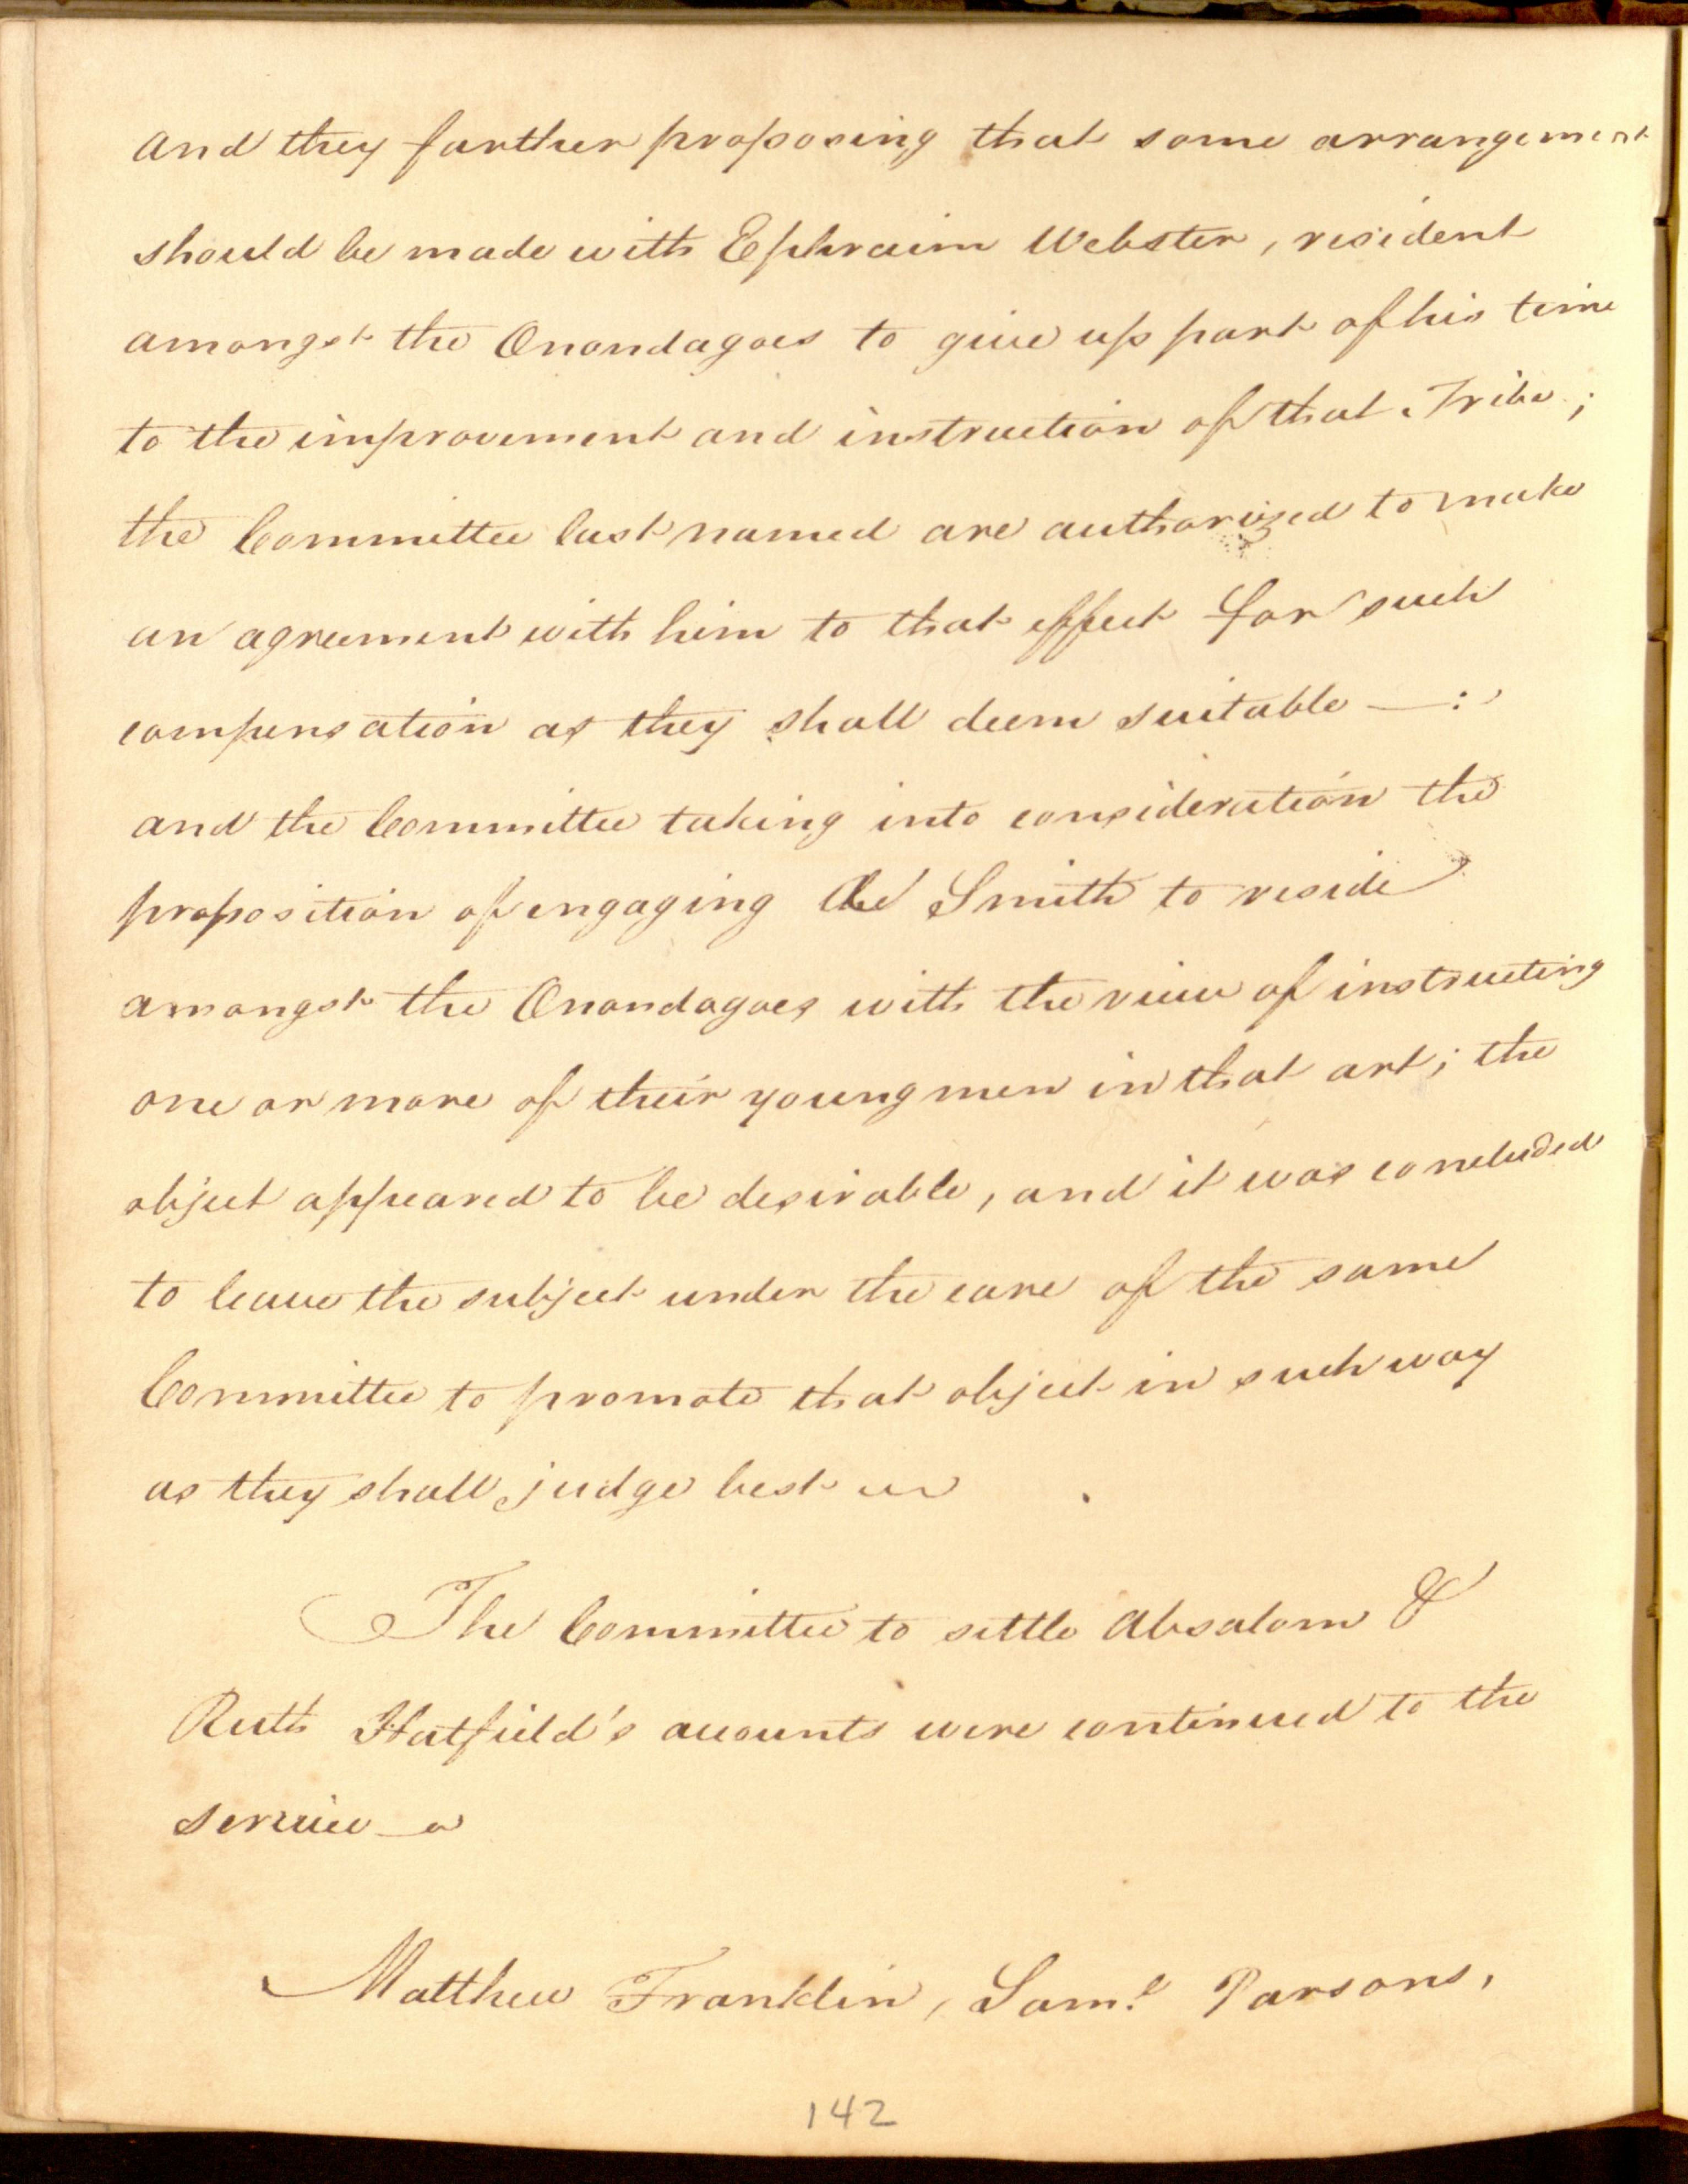 and they further proposing that some arrangement
should be made with Ephraim Webster, resident
amongst the Onondagoes to give up part of his time
to the improvement and instruction of that Tribe;
the Committee last named are authorized to make
an agreement with him to that effect for such
compensation as they shall deem suitable —:
and the Committee taking into consideration the
proposition of engaging a Smith to reside
amongst the Onondagoes with the view of instructing
one or more of their young men in that art; the
object appeared to be desirable, and it was concluded
to leave the subject under the care of the same
Committee to promote that object in such way
as they shall judge best
The Committee to settle Absalom &
Ruth Hatfield's accounts were continued to the
service
Matthew Franklin, Saml. Parsons,
142